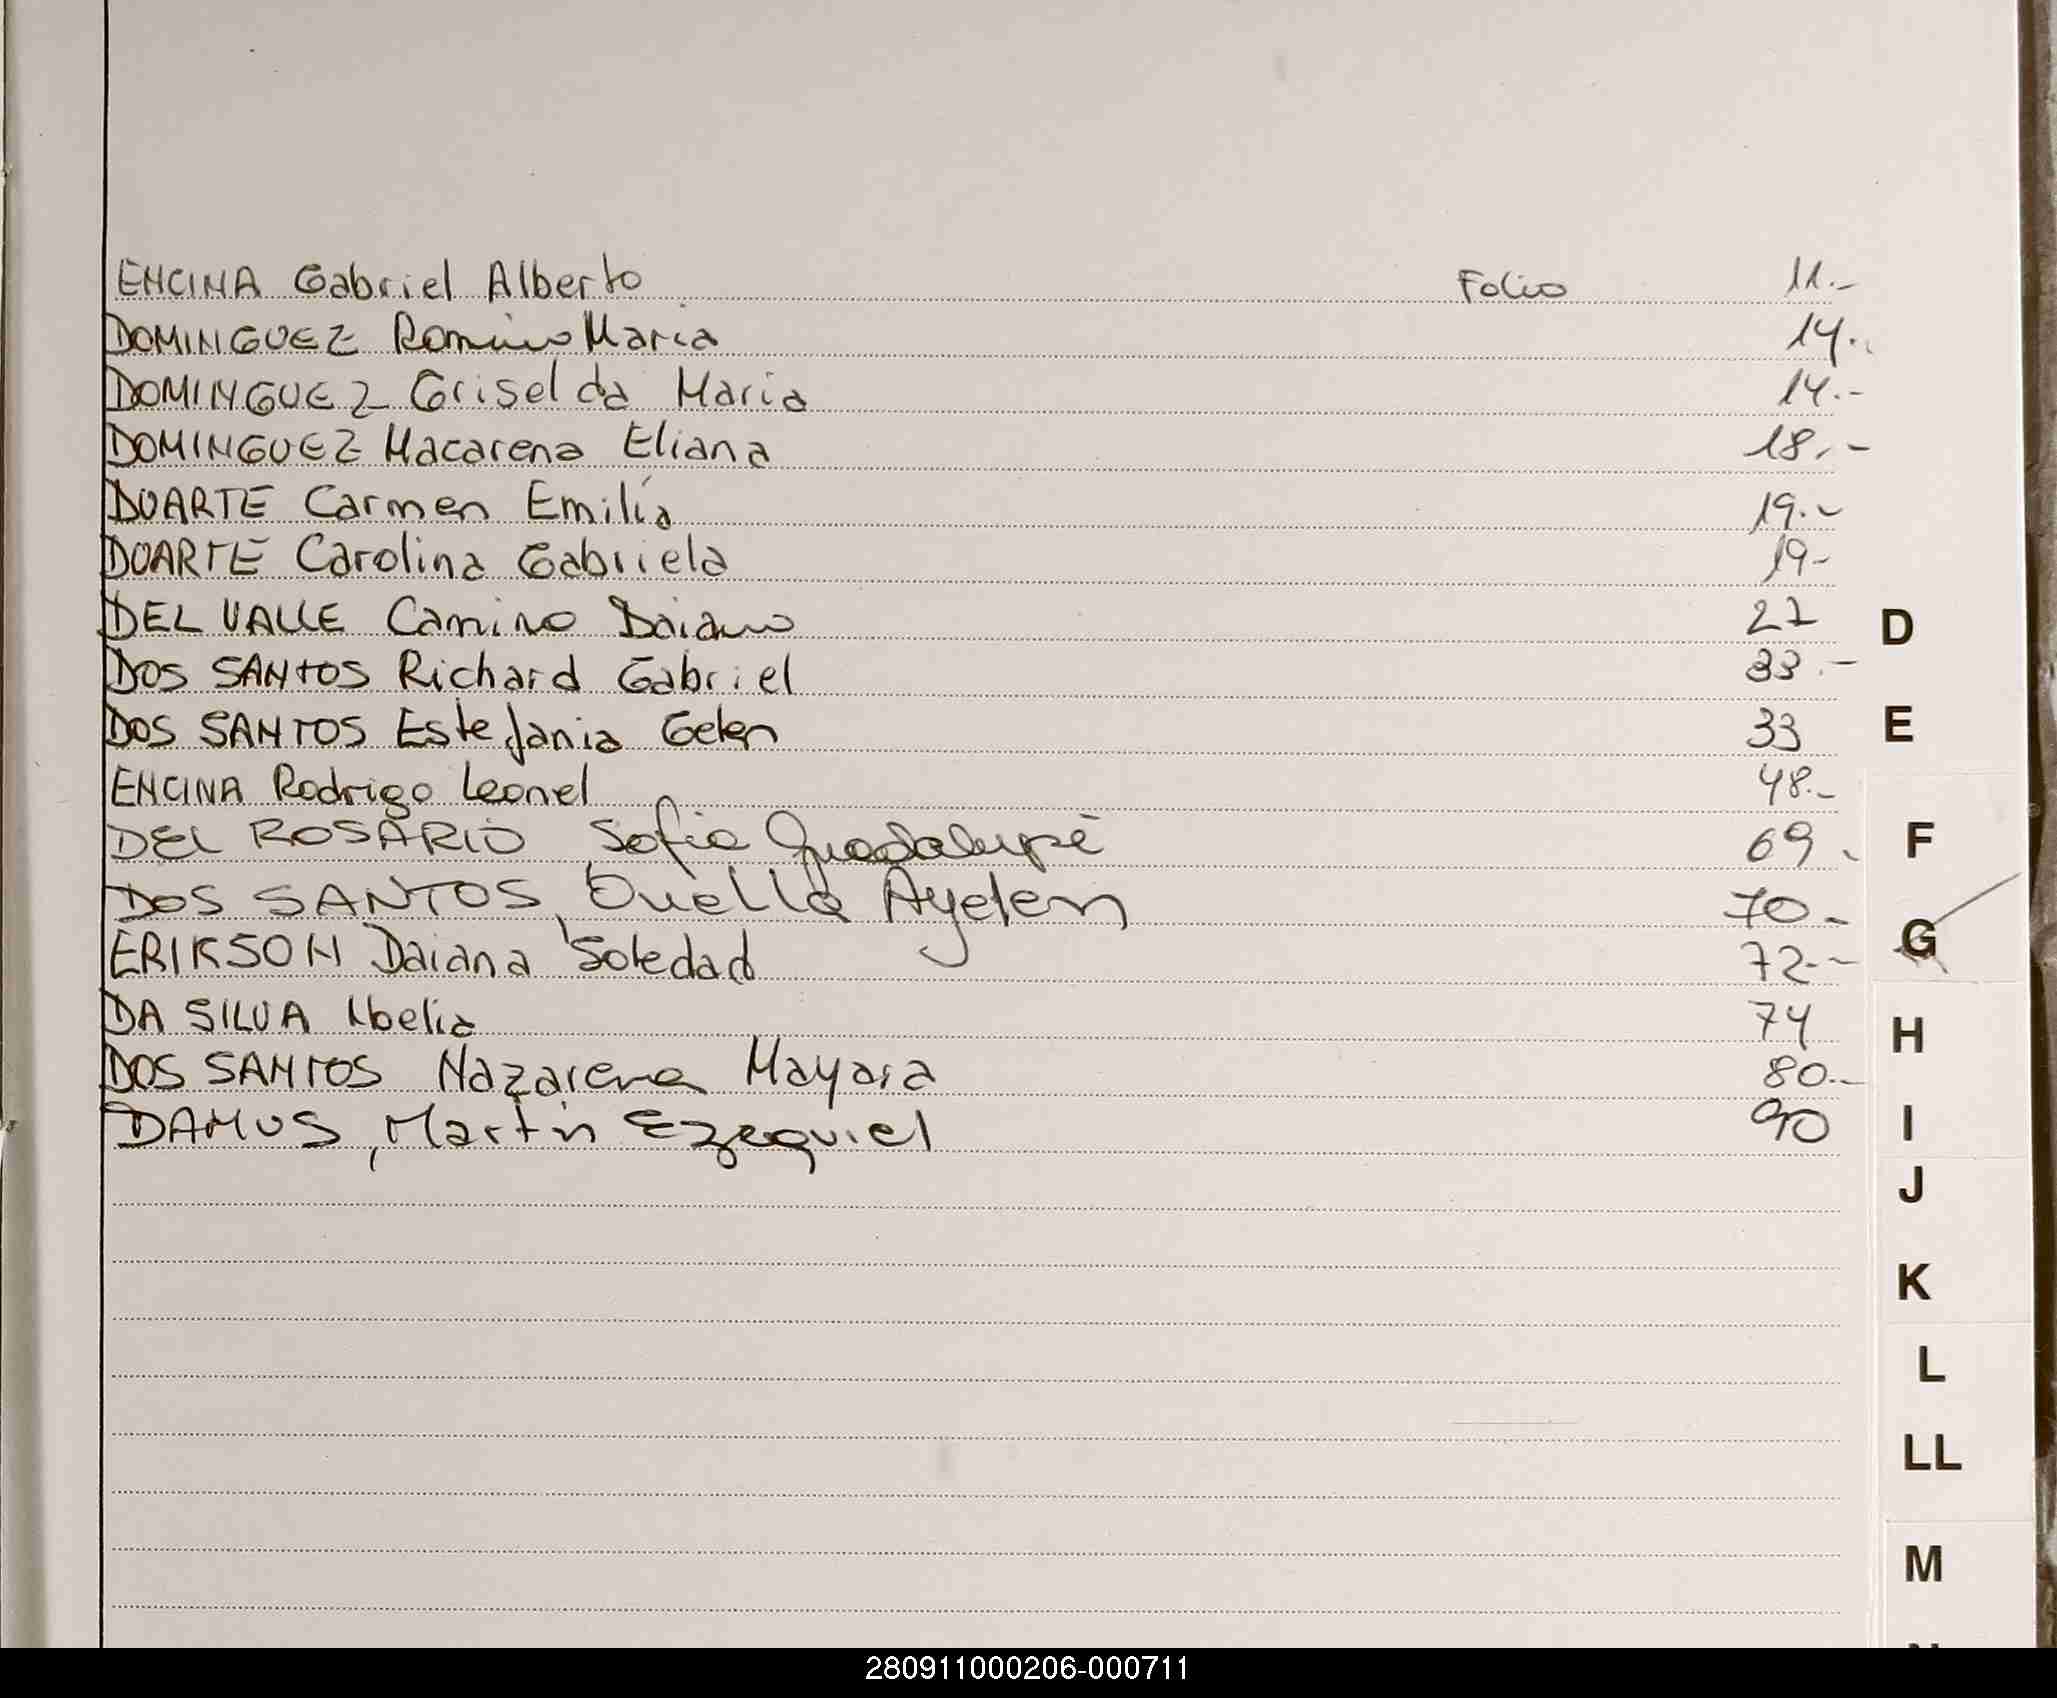 ENCINA Gabriel Alberto Folio 11.-
DOMINGUEZ Romina Maria 14.-
DOMINGUEZ Griselda Maria 14.-
DOMINGUEZ Macarena Eliana 18.-
DUARTE Carmen Emilia 19.-
DUARTE Carolina Gabriela 19-
DEL VALLE Camino Daiana 27
DOS SANTOS Richard Gabriel 33.-
DOS SANTOS Estefania Gelen 33
ENCINA Rodrigo Leonel 48.-
DEL ROSARIO Sofia Guadalupe 69.
DOS SANTOS, Ayelen 70.-
ERIKSON Daiana Soledad 72.-
DA SILVA 74
DOS SANTOS Nazarena Mayara 80.-
DAMUS, Martin Ezequiel 90
D
E
F
G
H
I
J
K
L
LL
M
280911000206-000711